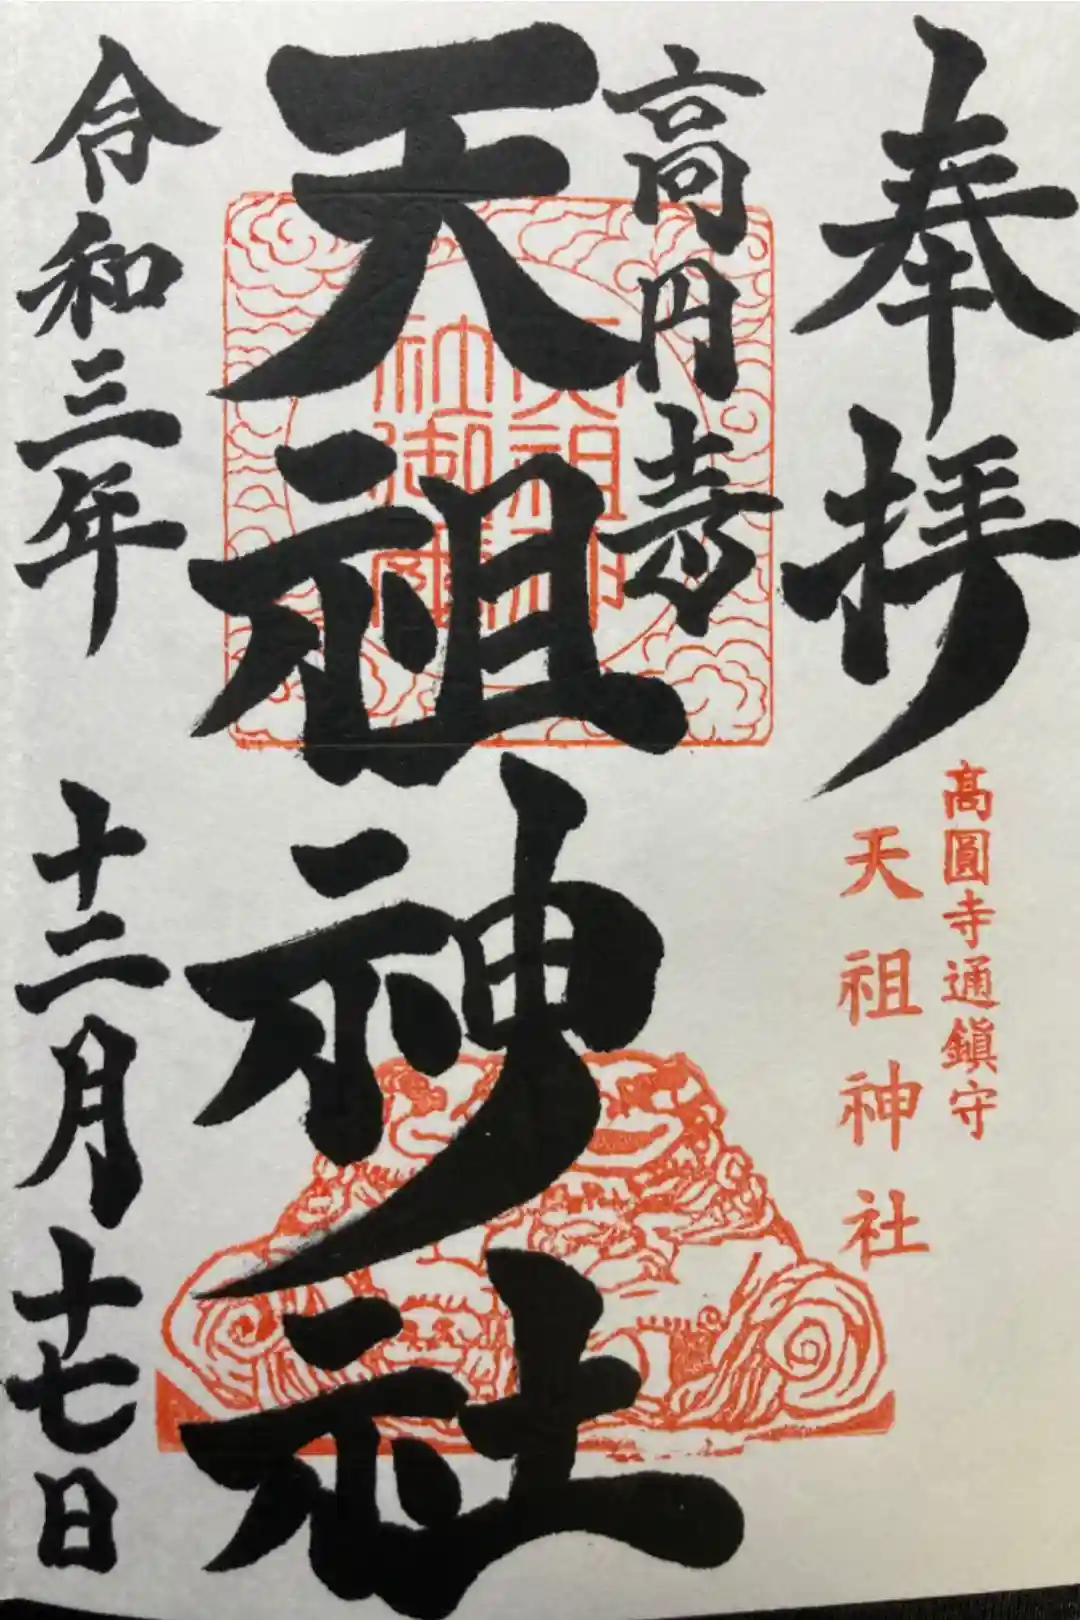 奉拝
高圓寺通鎮守
天祖神社
高円寺
天祖神社
天祖神
社御璽
令和三年
十二月十七日